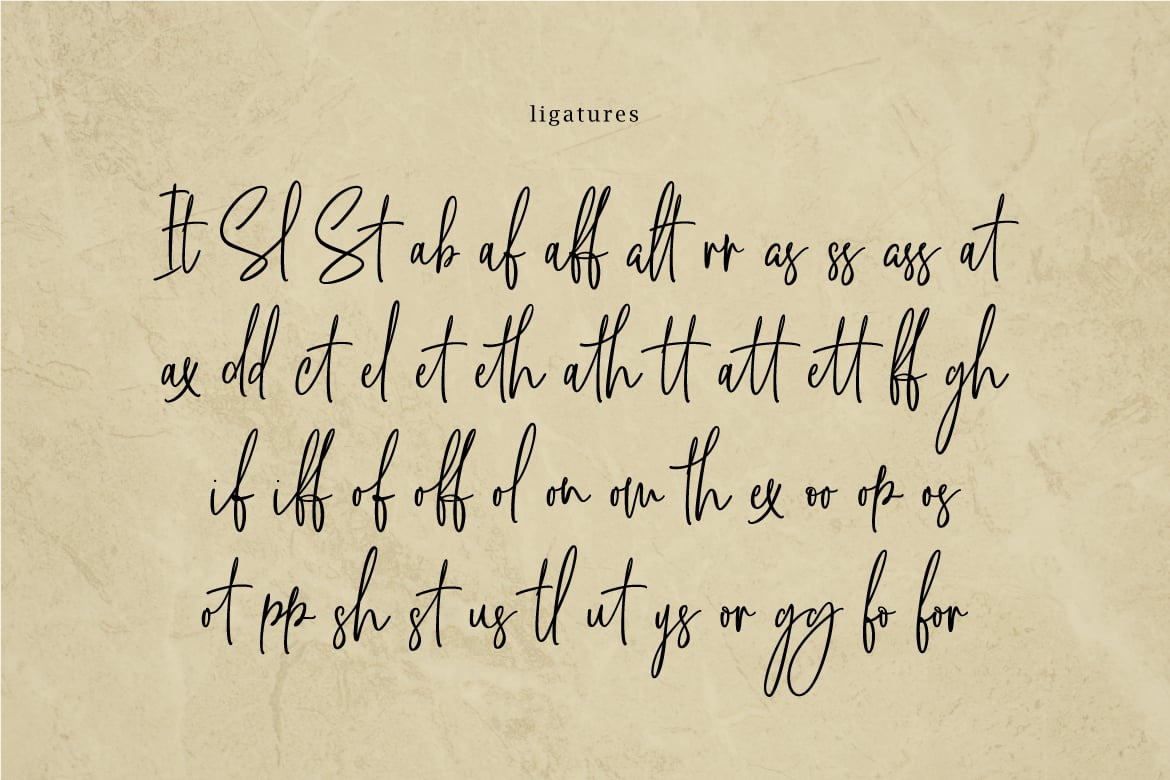 ligatures
It Sl St ab af aff alt rr as ss ass at
ax dd ct el et eth ath tt att ett ff gh
if iff of off ol on om th ex oo op os
ot pp sh st us tl ut ys or gg fo for